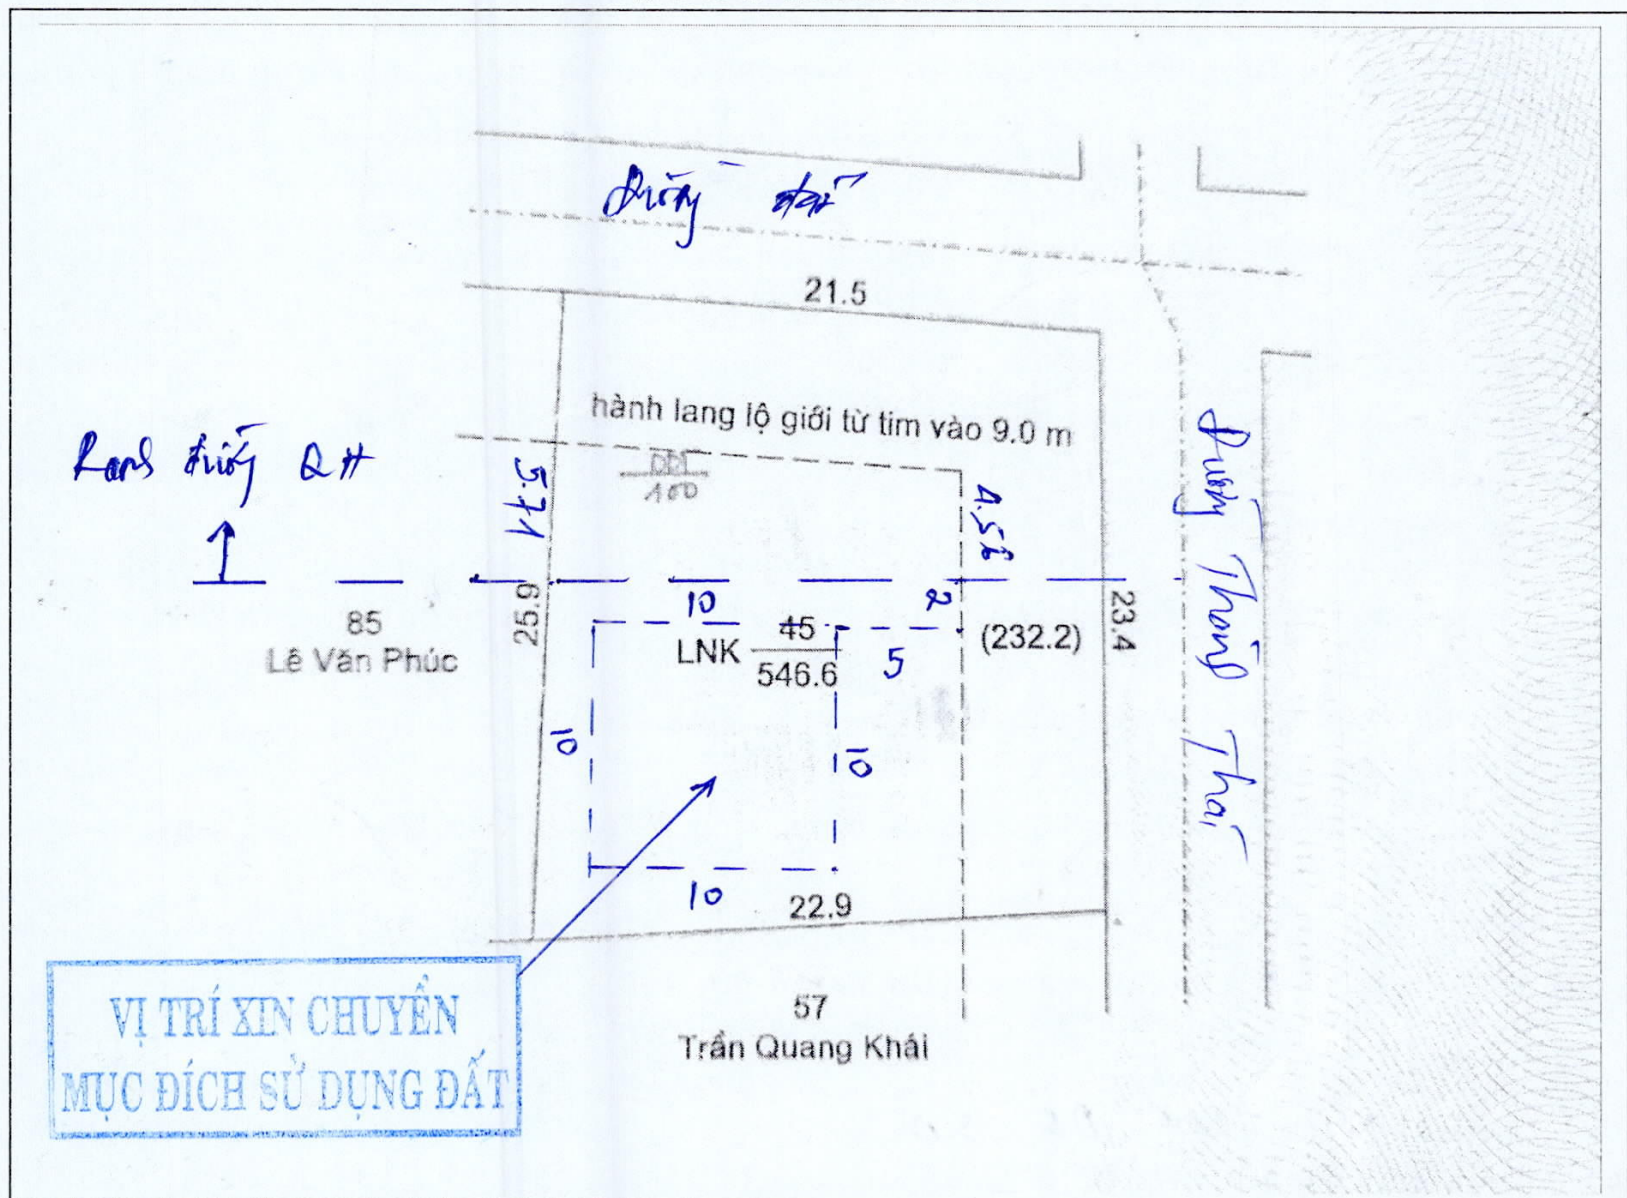 Đường đất
21.5
hành lang lộ giới từ tim vào 9.0 m
Ranh đường QH
5.71
100
4.58
Đường Thông Thái
25.9
85
Lê Văn Phúc
10
2
LNK 45
546.6
5
(232.2)
23.4
10
10
10
22.9
57
Trần Quang Khải
VỊ TRÍ XIN CHUYỂN
MỤC ĐÍCH SỬ DỤNG ĐẤT